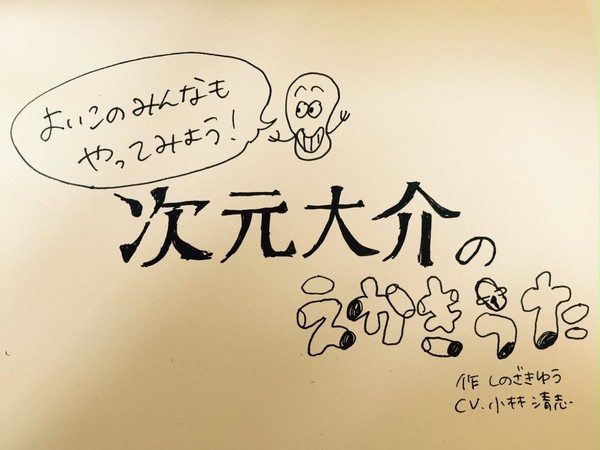 よいこのみんなも
やってみよう!
次元大介の
えかきうた
作 しのざきゆう
CV. 小林清志